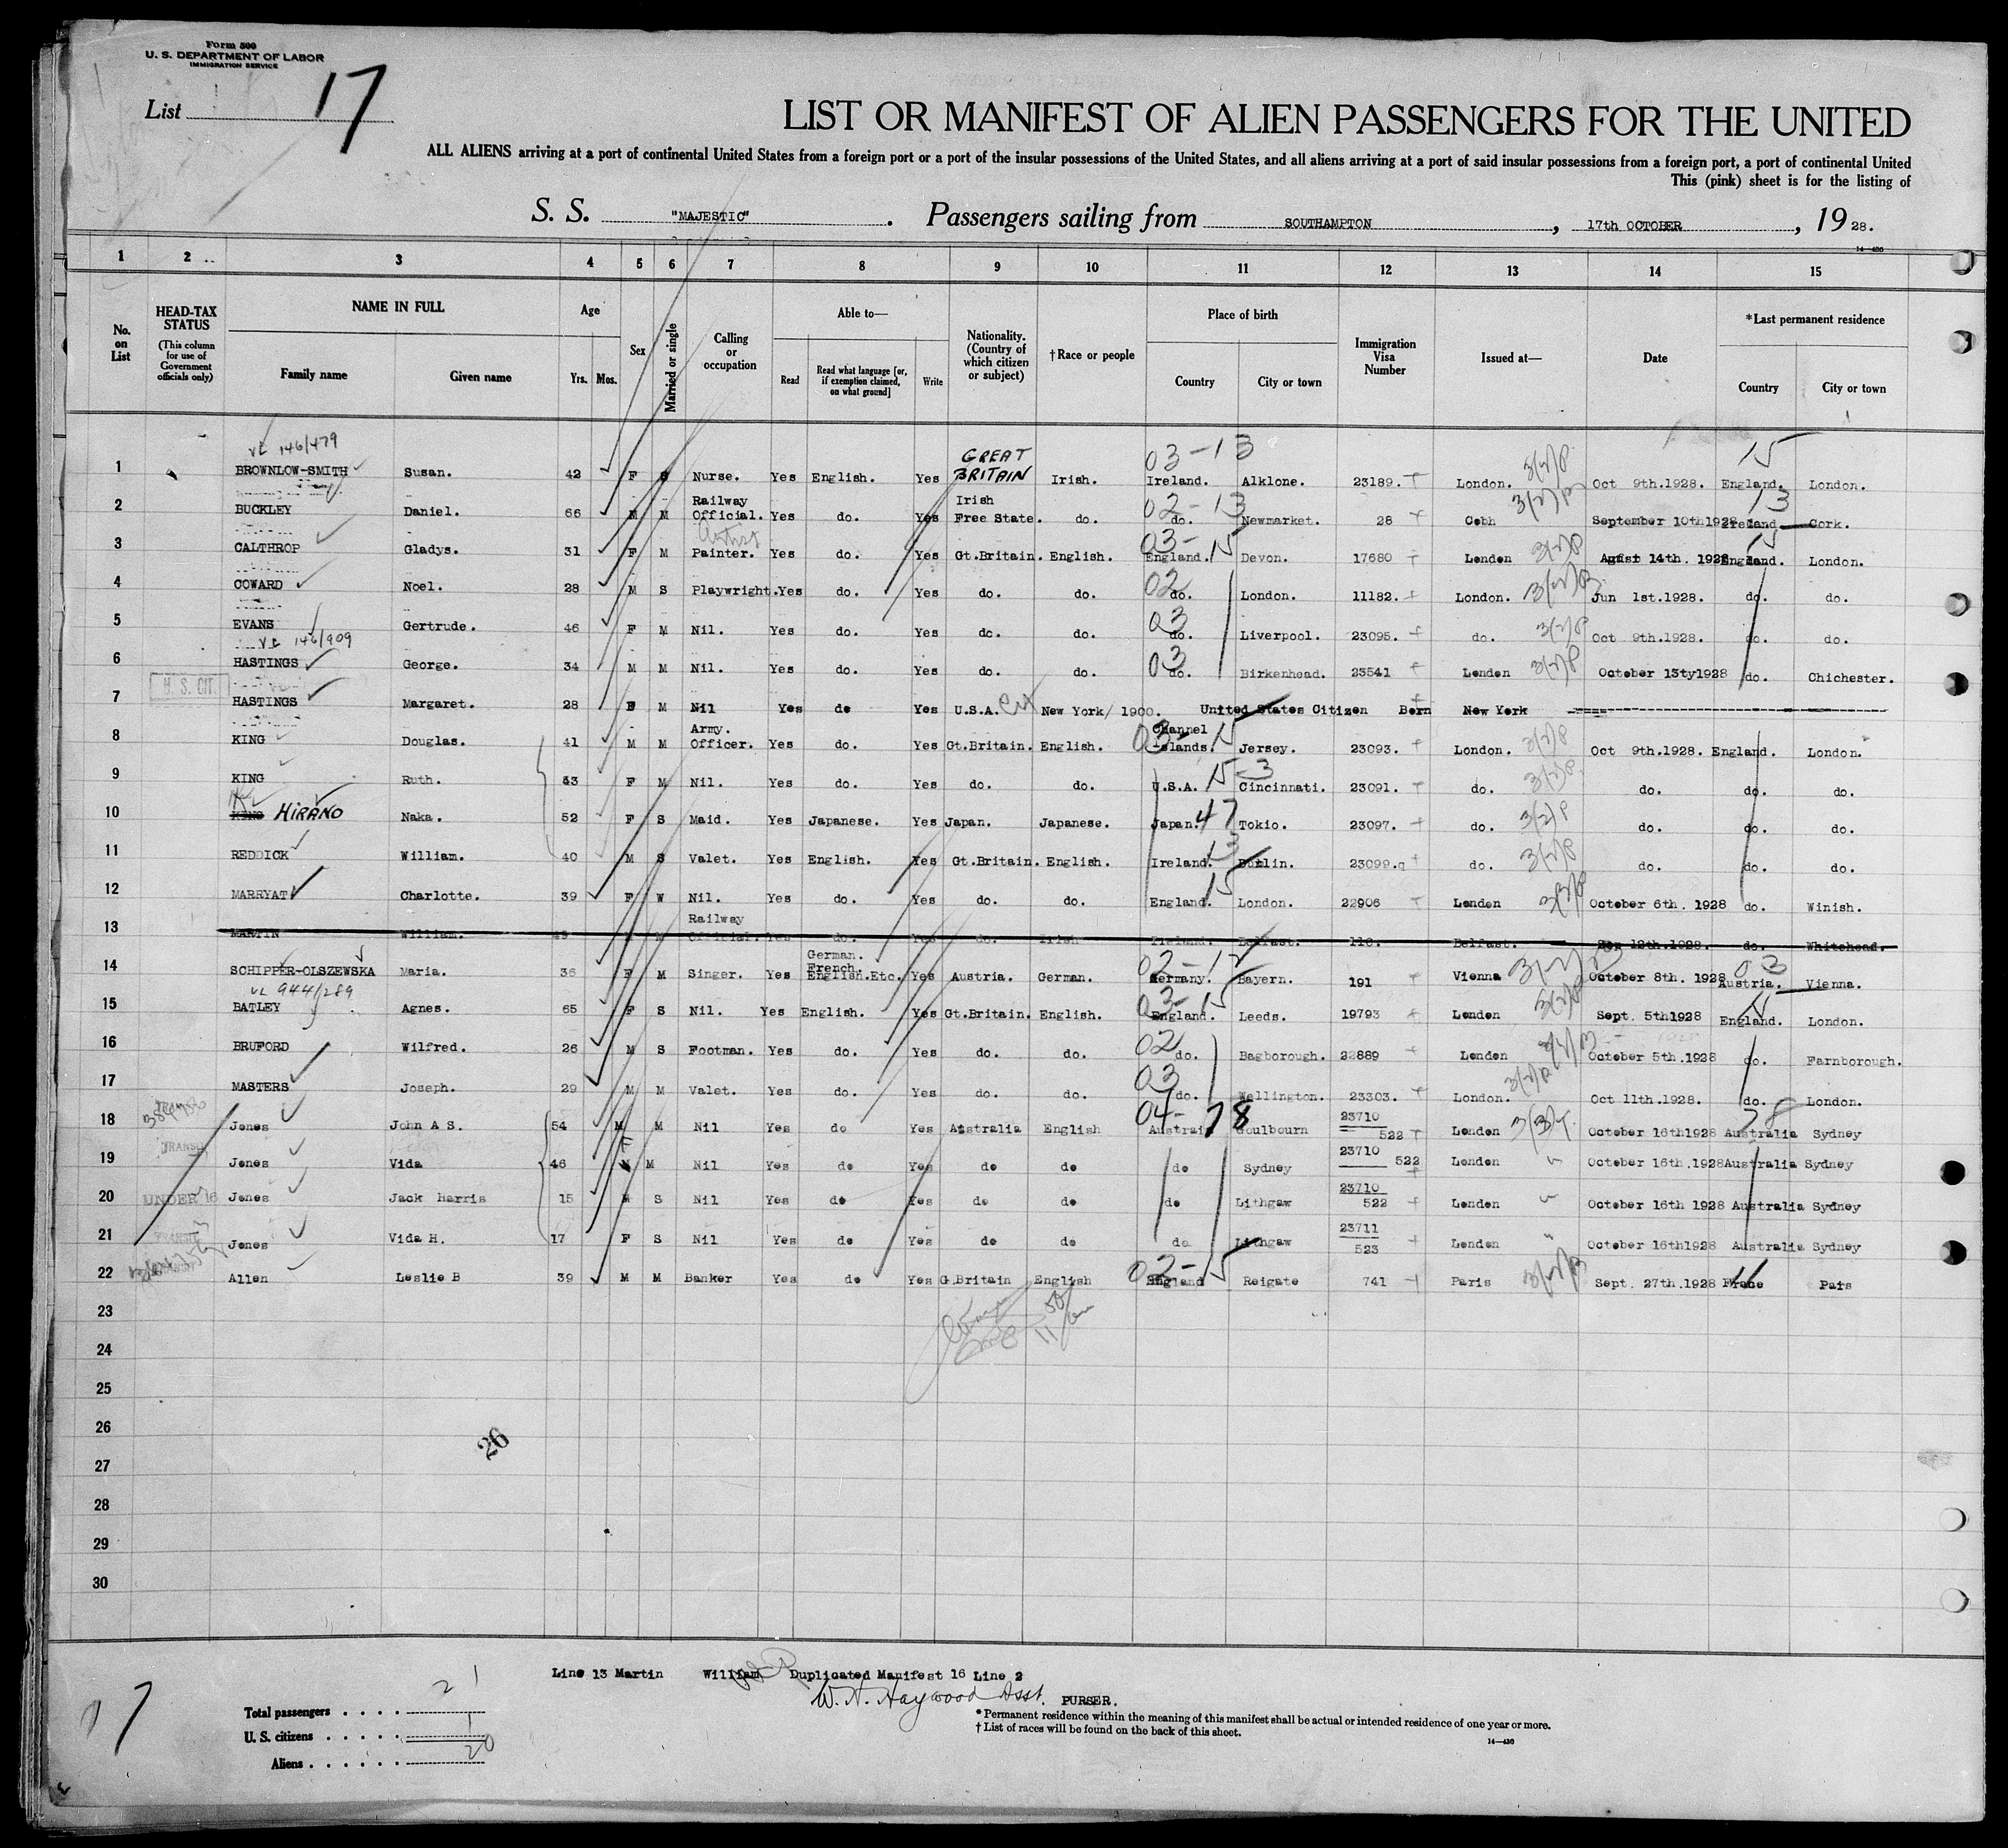 Form 500
U. S. DEPARTMENT OF LABOR
IMMIGRATION SERVICE
List 17
LIST OR MANIFEST OF ALIEN PASSENGERS FOR THE UNITED
ALL ALIENS arriving at a port of continental United States from a foreign port or a port of the insular possessions of the United States, and all aliens arriving at a port of said insular possessions from a foreign port, a port of continental United
This (pink) sheet is for the listing of
S. S. "MAJESTIC" . Passengers sailing from SOUTHAMPTON , 17th OCTOBER , 19 28.
14—486
1 2 3 4 5 6 7 8 9 10 11 12 13 14 15
No. on List
HEAD-TAX STATUS (This column for use of Government officials only)
NAME IN FULL Family name Given name
Age Yrs. Mos.
Sex
Married or single
Calling or occupation
Able to— Read Read what language [or, if exemption claimed, on what ground] Write
Nationality. (Country of which citizen or subject)
†Race or people
Place of birth Country City or town
Immigration Visa Number
Issued at—
Date
*Last permanent residence Country City or town
146/479
03-13 15
1 BROWNLOW-SMITH Susan. 42 F S Nurse. Yes English. Yes GREAT BRITAIN Irish. Ireland. Alklone. 23189. London. Oct 9th.1928. England. London.
02-13 13
2 BUCKLEY Daniel. 66 M M Railway Official. Yes do. Yes Irish Free State. do. do. Newmarket. 28 Cobh September 10th1928 Ireland Cork.
Artist 03-15 15
3 CALTHROP Gladys. 31 F M Painter. Yes do. Yes Gt.Britain. English. England. Devon. 17680 London August 14th. 1928 England. London.
02
4 COWARD Noel. 28 M S Playwright. Yes do. Yes do. do. do. London. 11182. London. Jun 1st.1928. do. do.
03
5 EVANS Gertrude. 46 F M Nil. Yes do. Yes do. do. do. Liverpool. 23095. do. Oct 9th.1928. do. do.
146/909 03
6 HASTINGS George. 34 M M Nil. Yes do. Yes do. do. do. Birkenhead. 23541 London October 13ty1928 do. Chichester.
U. S. CIT.
7 HASTINGS Margaret. 28 F M Nil Yes do Yes U.S.A. New York/ 1900. United States Citizen Born New York
03-15
8 KING Douglas. 41 M M Army. Officer. Yes do. Yes Gt.Britain. English. Channel Islands. Jersey. 23093. London. Oct 9th.1928. England. London.
15-3
9 KING Ruth. 43 F M Nil. Yes do. Yes do. do. U.S.A. Cincinnati. 23091. do. do. do. do.
47
10 KING HIRANO Naka. 52 F S Maid. Yes Japanese. Yes Japan. Japanese. Japan. Tokio. 23097. do. do. do. do.
13
11 REDDICK William. 40 M S Valet. Yes English. Yes Gt.Britain. English. Ireland. Dublin. 23099. do. do. do. do.
15
12 MARRYAT Charlotte. 39 F W Nil. Yes do. Yes do. do. England. London. 22906 London October 6th. 1928 do. Winish.
13 MARTIN William. 49 M M Railway Official. Yes do. Yes do. Irish Ireland. Belfast. 116. Belfast. Sep 12th.1928. do. Whitehead.
02-17 03
14 SCHIPPER-OLSZEWSKA Maria. 36 F M Singer. Yes German. French. English.Etc. Yes Austria. German. Germany. Bayern. 191 Vienna October 8th. 1928 Austria. Vienna.
944/289 03-15 15
15 BATLEY Agnes. 65 F S Nil. Yes English. Yes Gt.Britain. English. England. Leeds. 19793 London Sept. 5th1928 England. London.
02
16 BRUFORD Wilfred. 26 M S Footman. Yes do. Yes do. do. do. Bagborough. 22889 London October 5th.1928 do. Farnborough.
03
17 MASTERS Joseph. 29 M M Valet. Yes do. Yes do. do. do. Wellington. 23303. London. Oct 11th.1928. do. London.
04-78 78
18 Jones John A S. 54 M M Nil Yes do Yes Australia English Austral Goulbourn 23710 522 London October 16th1928 Australia Sydney
TRANSIT
19 Jones Vida 46 F M Nil Yes do Yes do do do Sydney 23710 522 London October 16th.1928 Australia Sydney
UNDER 16
20 Jones Jack Harris 15 M S Nil Yes do Yes do do do Lithgaw 23710 522 London October 16th 1928 Australia Sydney
TRANSIT
21 Jones Vida H. 17 F S Nil Yes do Yes do do do Lithgaw 23711 523 London October 16th1928 Australia Sydney
02-15
22 Allen Leslie B 39 M M Banker Yes do Yes G.Britain English England Reigate 741 Paris Sept. 27th.1928 Frace Pars
23
24
25
26
27
28
29
30
26
Line 13 Martin William Duplicated Manifest 16 Line 2
W. H. Haywood Asst. PURSER.
* Permanent residence within the meaning of this manifest shall be actual or intended residence of one year or more.
† List of races will be found on the back of this sheet.
14—486
17
Total passengers . . . . 21
U. S. citizens . . . . . 1
Aliens . . . . . . 20